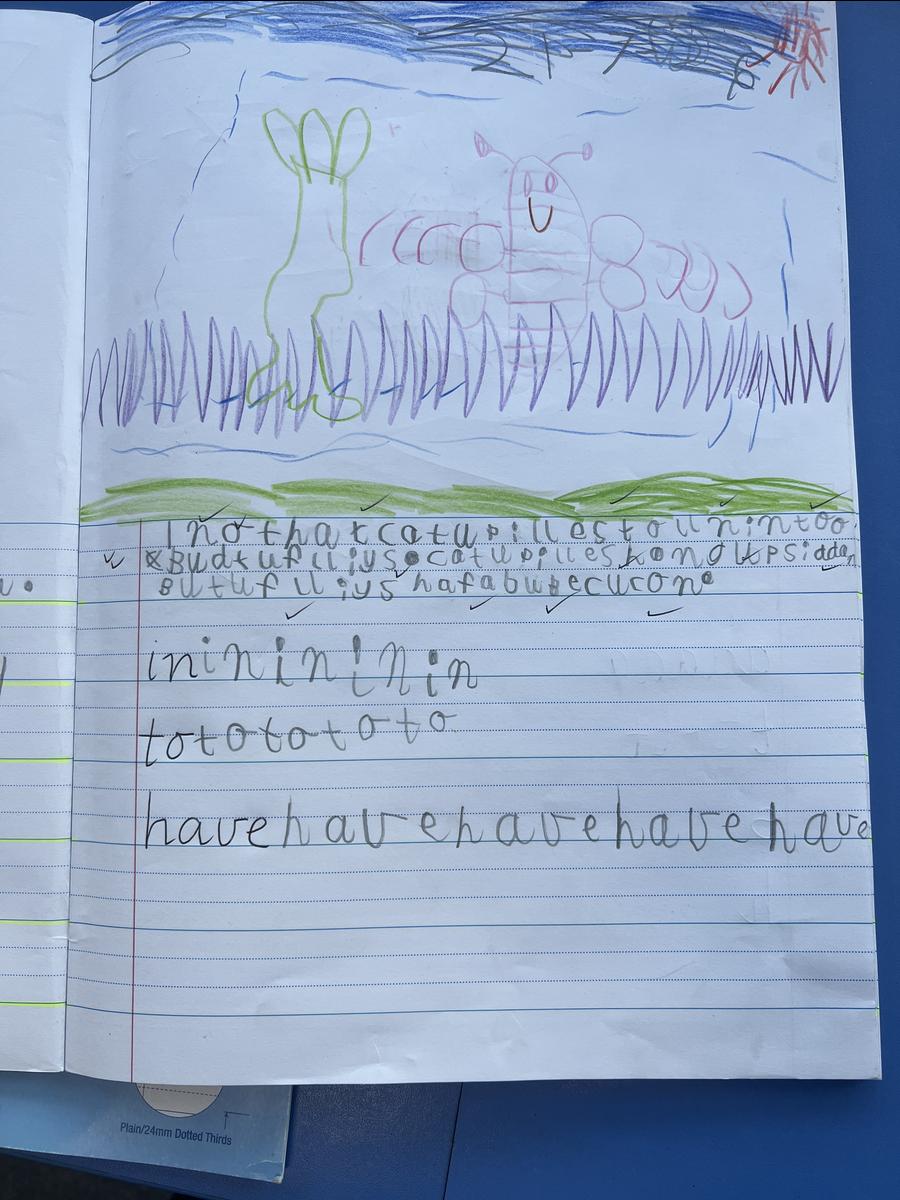 21 7 6
I no that catupilles toun in too
Budtuflliys catupilles hang upsiddan
Butuflliys haf a butecucon.
in in in in in
to to to to to
have have have have have
Plain/24mm Dotted Thirds